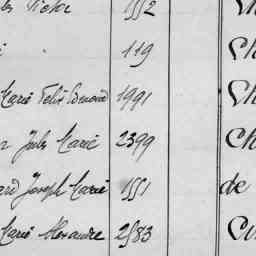 Victor 1552 Ch
119 Ch
Marie Felix Edmond 1991 Ch
Jules Marie 2399 Ch
Joseph Marie 1551 de
Marie Alexandre 2583